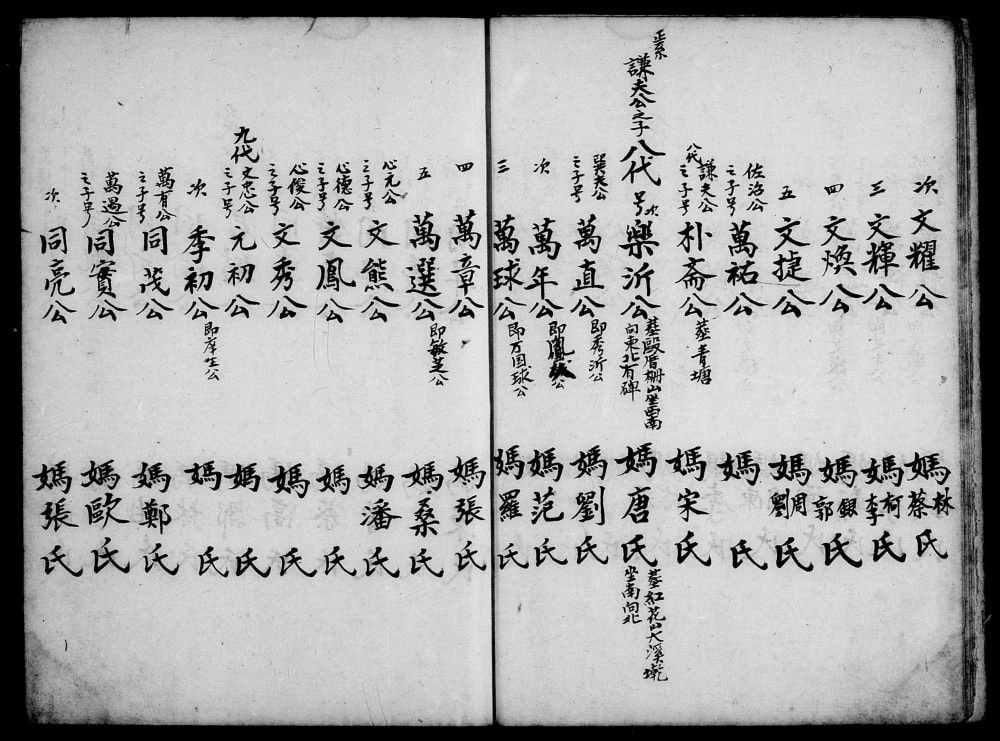 次 文耀公 媽林蔡氏
三 文輝公 媽柯李氏
四 文煥公 媽銀郭氏
五 文捷公 媽周劉氏
佐治公之子号 萬祐公 媽 氏
八代 謙夫公之子号 朴斎公 墓青塘 媽宋氏
正系 謙夫公之子八代号次樂沂公 墓殿厝柵山坐西南向東北有碑 媽唐氏 墓紅花山大溪墘坐南向北
巽夫公之子号 萬直公 即秀沂公 媽劉氏
次 萬年公 即鳳 公 媽范氏
三 萬球公 即万国球公 媽羅氏
四 萬章公 媽張氏
五 萬選公 即敏芝公 媽桑氏
心元公之子号 文熊公 媽潘氏
心德公之子号 文鳳公 媽 氏
心俊公之子号 文秀公 媽 氏
九代 文忠公之子号 元初公 媽 氏
次 季初公 即庠生公 媽 氏
萬有公之子号 同茂公 媽鄭氏
萬遇公之子号 同實公 媽歐氏
次 同亮公 媽張氏